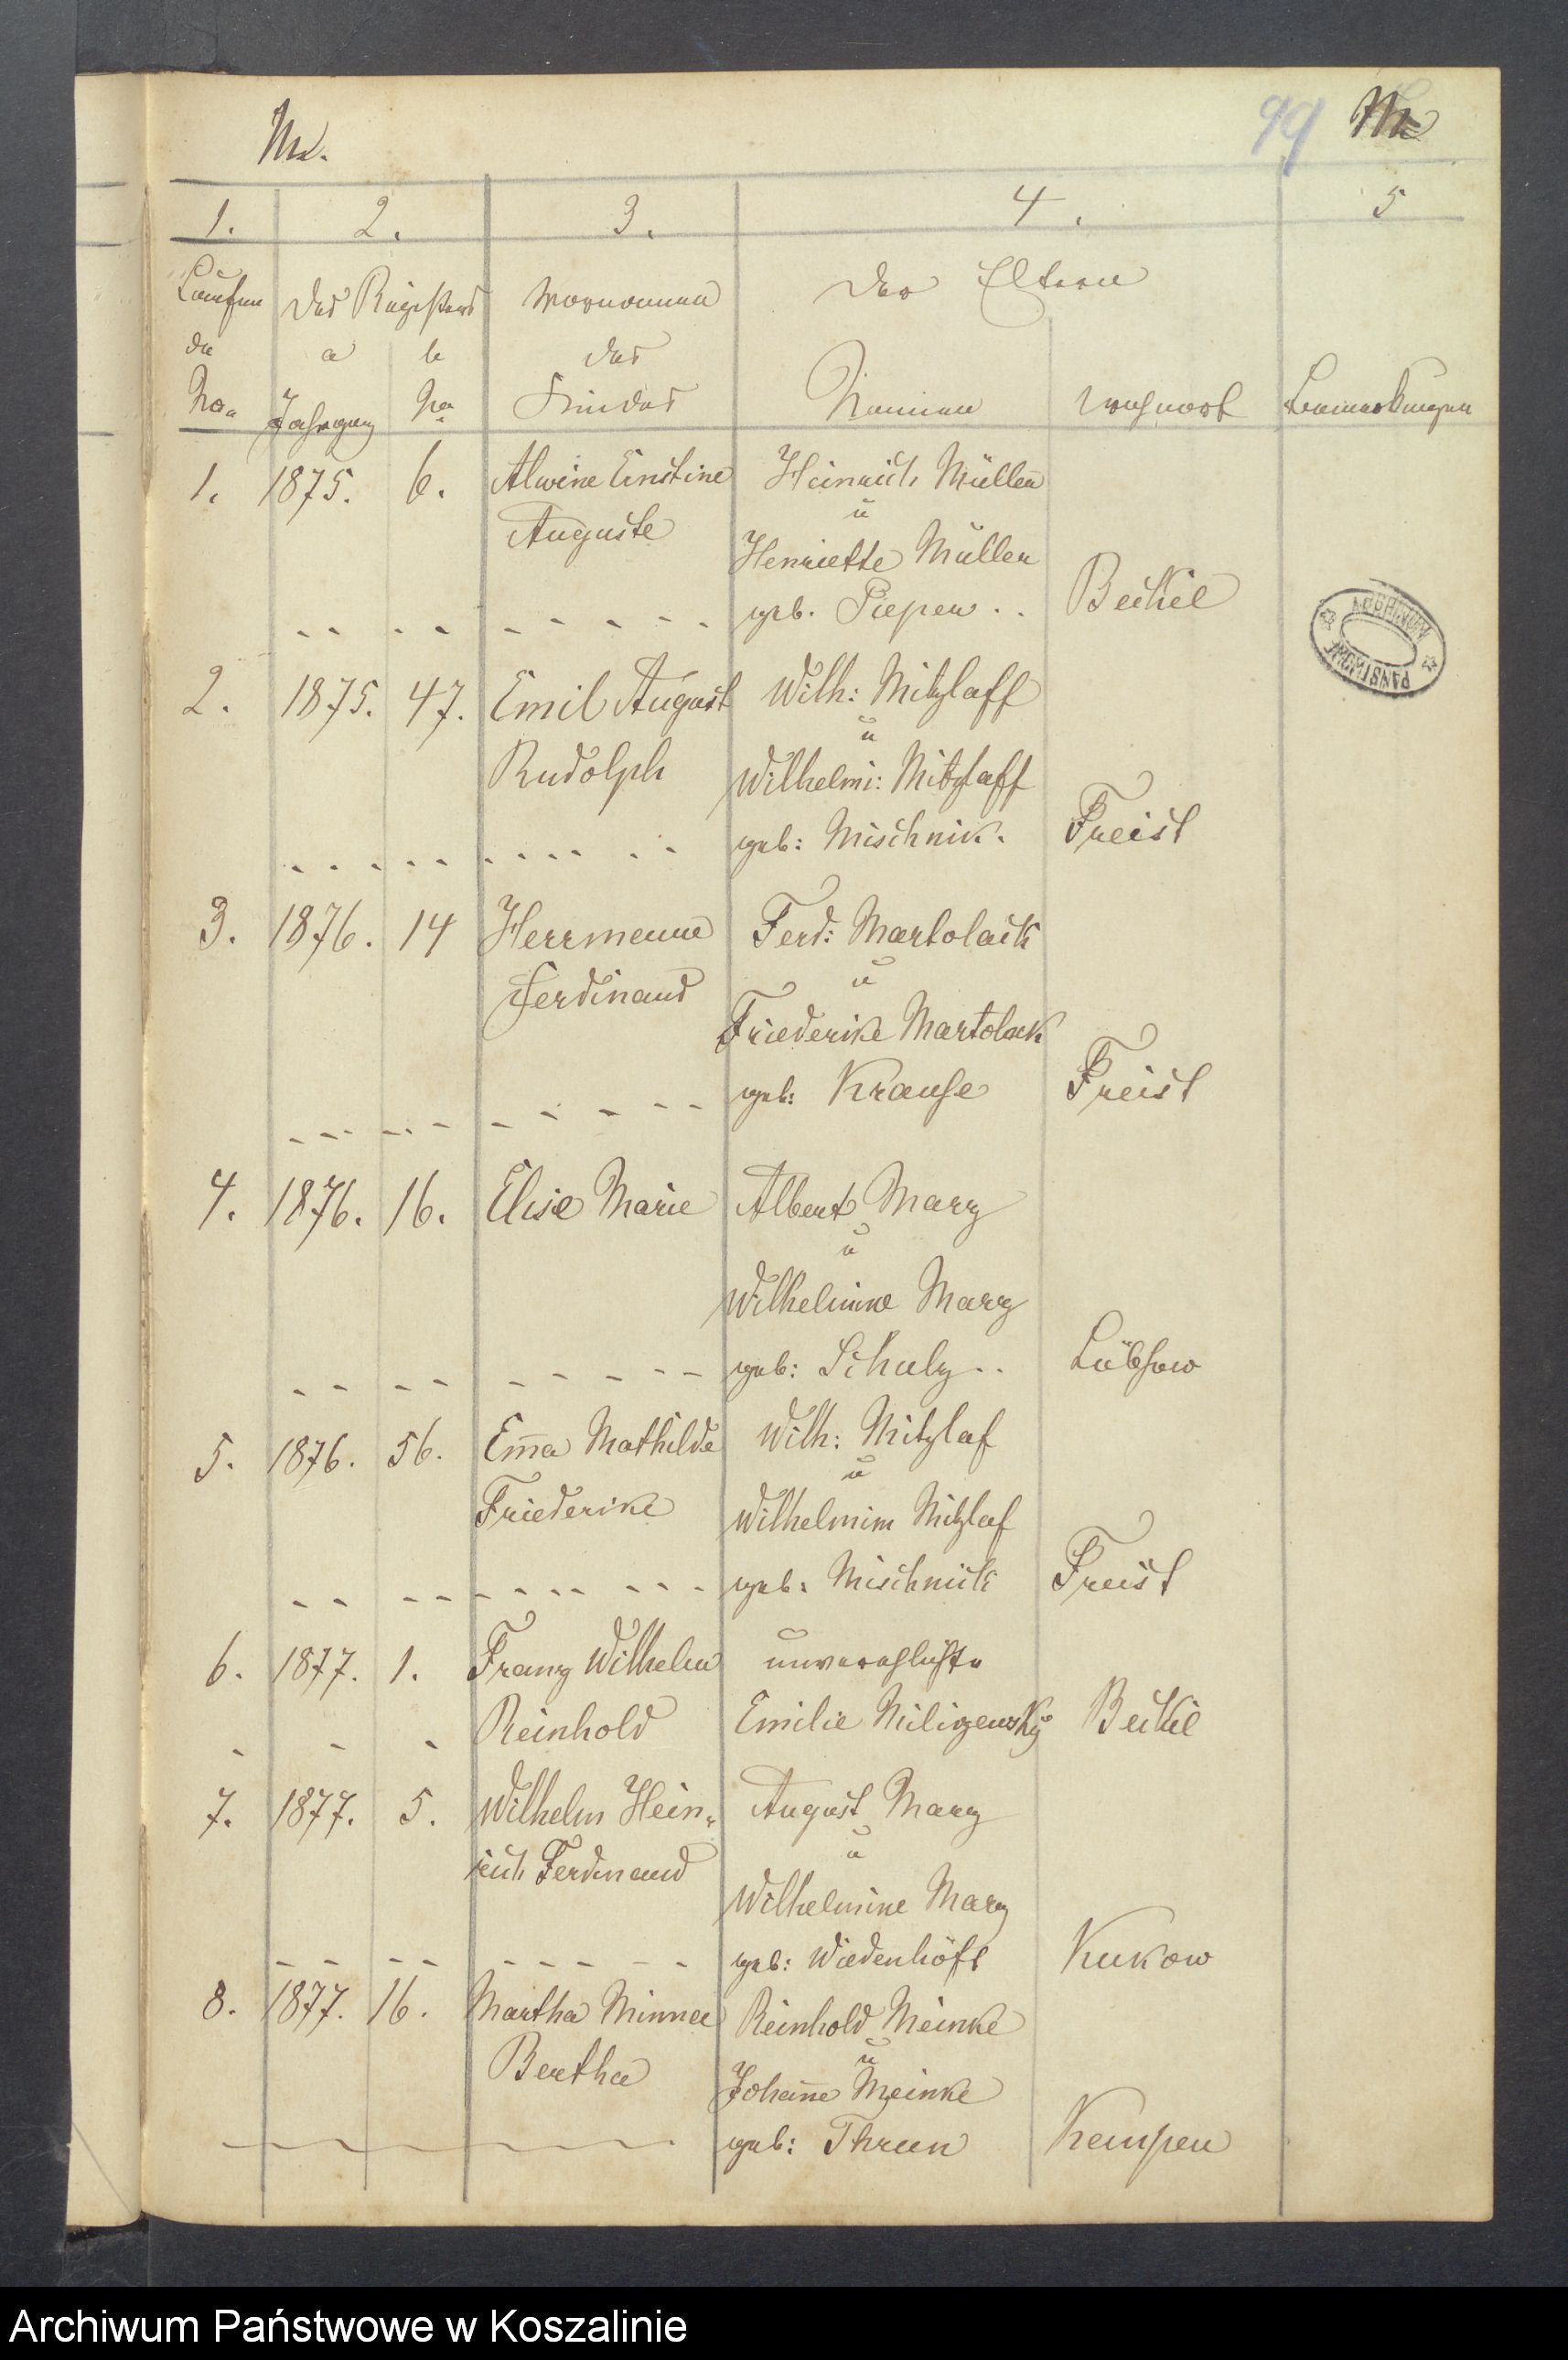 M.
99
1. 2. 3. 4. 5
Laufen
de
No.
Des Registers
a b
Jahrgang No
Vornamen
des
Kindes
Der Eltern
Namen Wohnort
Bemerkungen
1. 1875. 6. Alwine Ernstine Heinrich Müller
Auguste ü
Henriette Müller
geb. Pieper. Beckel
ARCHIWUM
PAŃSTWOWE
2. 1875. 47. Emil August Wilh: Mitzlaff
Rudolph ü
Wilhelmi: Mitzlaff
geb: Mischnik. Freist
3. 1876. 14 Herrmann Ferd: Martolack
Ferdinand ü
Friederike Martolack
geb: Krause Freist
4. 1876. 16. Elise Marie Albert Marz
ü
Wilhelmine Marz
geb: Schulz Lübsow
5. 1876. 56. Em̄a Mathilde Wilh: Mitzlaf
Friederike ü
Wilhelmine Mitzlaf
geb: Mischnick Freist
6. 1877. 1. Franz Wilhelm unverehlichte
Reinhold Emilie Beckel
7. 1877. 5. Wilhelm Hein-
August Marz
rich Ferdinand ü
Wilhelmine Marz
geb: Wiedenhöft Kukow
8. 1877. 16. Martha Minna Reinhold Meinke
Bertha ü
Johan̄e Meinke
geb: Thrun Kempen
Archiwum Państwowe w Koszalinie